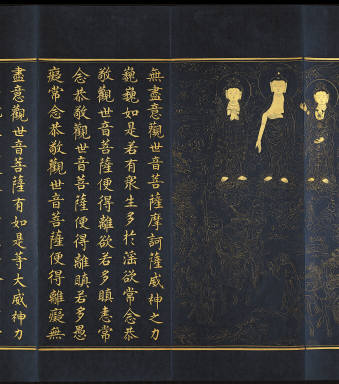 無盡意觀世音菩薩摩訶薩威神之力
巍巍如是若有衆生多於淫欲常念恭
敬觀世音菩薩便得離欲若多瞋恚常
念恭敬觀世音菩薩便得離瞋若多愚
癡常念恭敬觀世音菩薩便得離癡無
盡意觀世音菩薩有如是等大威神力